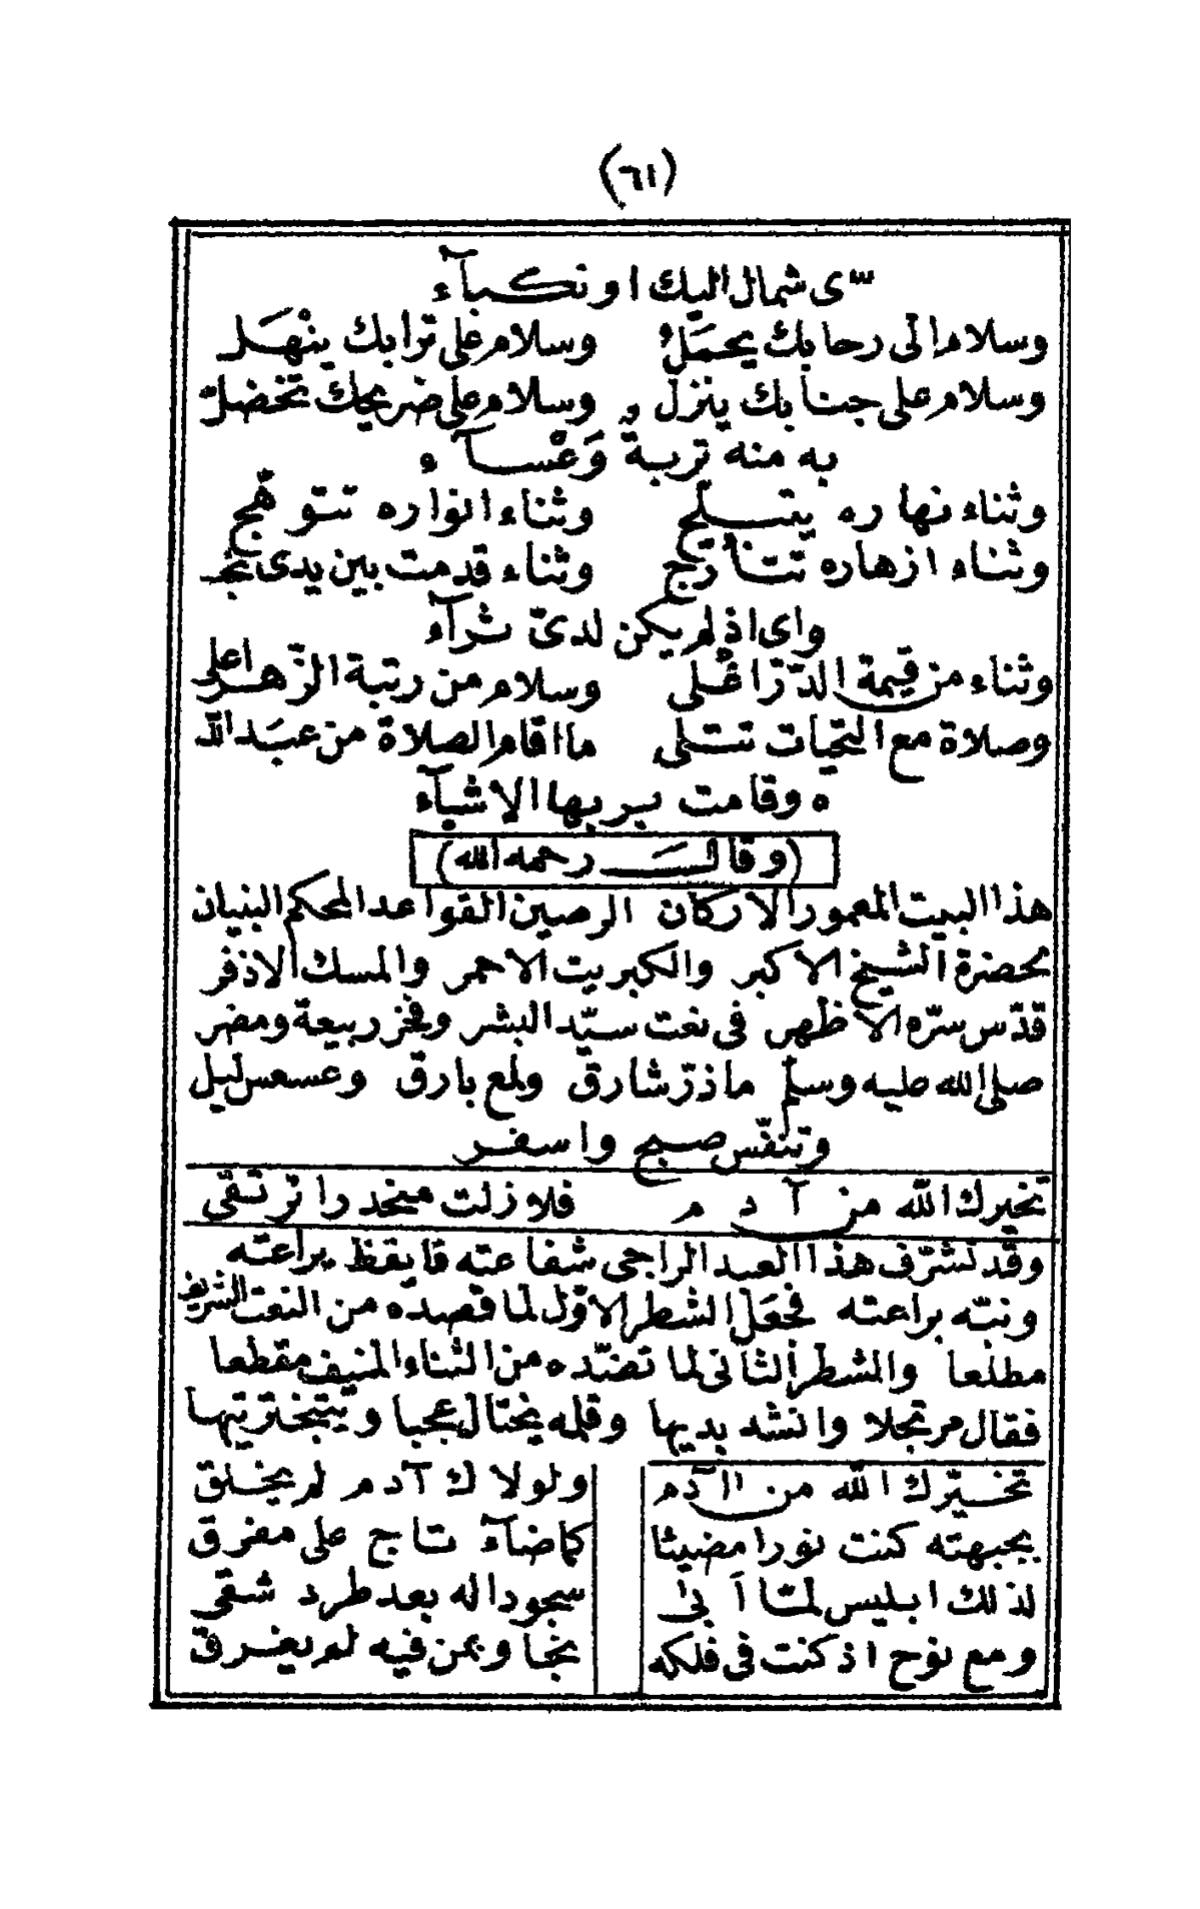 (٦١)
ىّ شمال اليك او نكبآء
وسلام الى رحابك يحمَلُ وسلام على ترابك ينْهَل
وسلام على جنابك ينزل وسلام على ضريحك تخضلّ
به منه تربةٌ وَعْسآء
وثناء نهاره يتبلّج وثناء انواره تتوهّج
وثناء ازهاره تتأرج وثناء قدمت بين يدى نجـ
واى اذ لم يكن لدىّ ثرآء
وثناء من قيمة الدّرّ اغْلى وسلام من رتبة الزّهر اعلى
وصلاة مع التحيات تتلى ما اقام الصلاة من عبَد الله
ه وقامت بربها الاشيآء
(وقال رحمه الله)
هذا البيت المعمور الاركان الرصين القواعد المحكم البنيان
لحضرة الشيخ الاكبر والكبريت الاحمر والمسك الاذفر
قدّس سرّه الاظهر فى نعت سيّد البشر وفخر ربيعة ومضر
صلى الله عليه وسلم ما ذرّ شارق ولمع بارق وعسعس ليل
وتنفّس صبح واسفر
تخيرك الله من آدم فلا زلت منحدرا ترتقى
وقد تشرّف هذا العبد الراجى شفاعته فايقظ يراعته
ونبّه براعته فجعَل الشطر الاوّل لما قصده من النعت الشريف
مطلعا والشطر الثانى لما تضدّه من الثناء المنيف مقطعا
فقال مرتجلا وانشد بديها وقلمه يختال عجبا ويتبختر تيها
تخيّرك الله من آدم ولولاك آدم لم يخلق
بجبهته كنت نورا مضيئا كما ضآء تاج على مفرق
لذلك ابليس لمّا اَبىٰ سجودا له بعد طرد شقى
ومع نوح اذ كنت فى فلكه نجا وبمن فيه لم يغرق